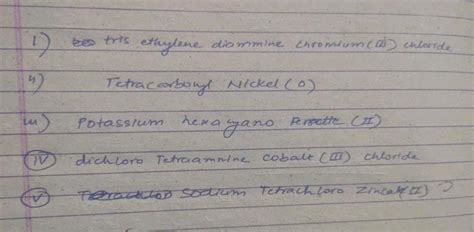 i) tris ethylene diammine chromium (III) chloride
ii) Tetracarbonyl Nickel (0)
iii) Potassium hexacyano Ferrate (II)
iv) dichloro Tetraamnine Cobalt (III) chloride
v) Sodium Tetrachloro Zincate (II)